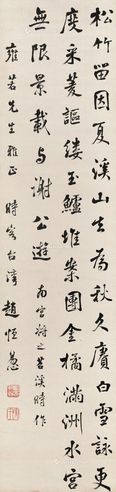 松竹留因夏溪山去為秋久賡白雪詠更
度采菱謳縷玉鱸堆案團金橘滿洲水宮
無限景載与謝公遊 南宮將之苕溪時作
雍若先生雅正 時客台灣 趙恆惖